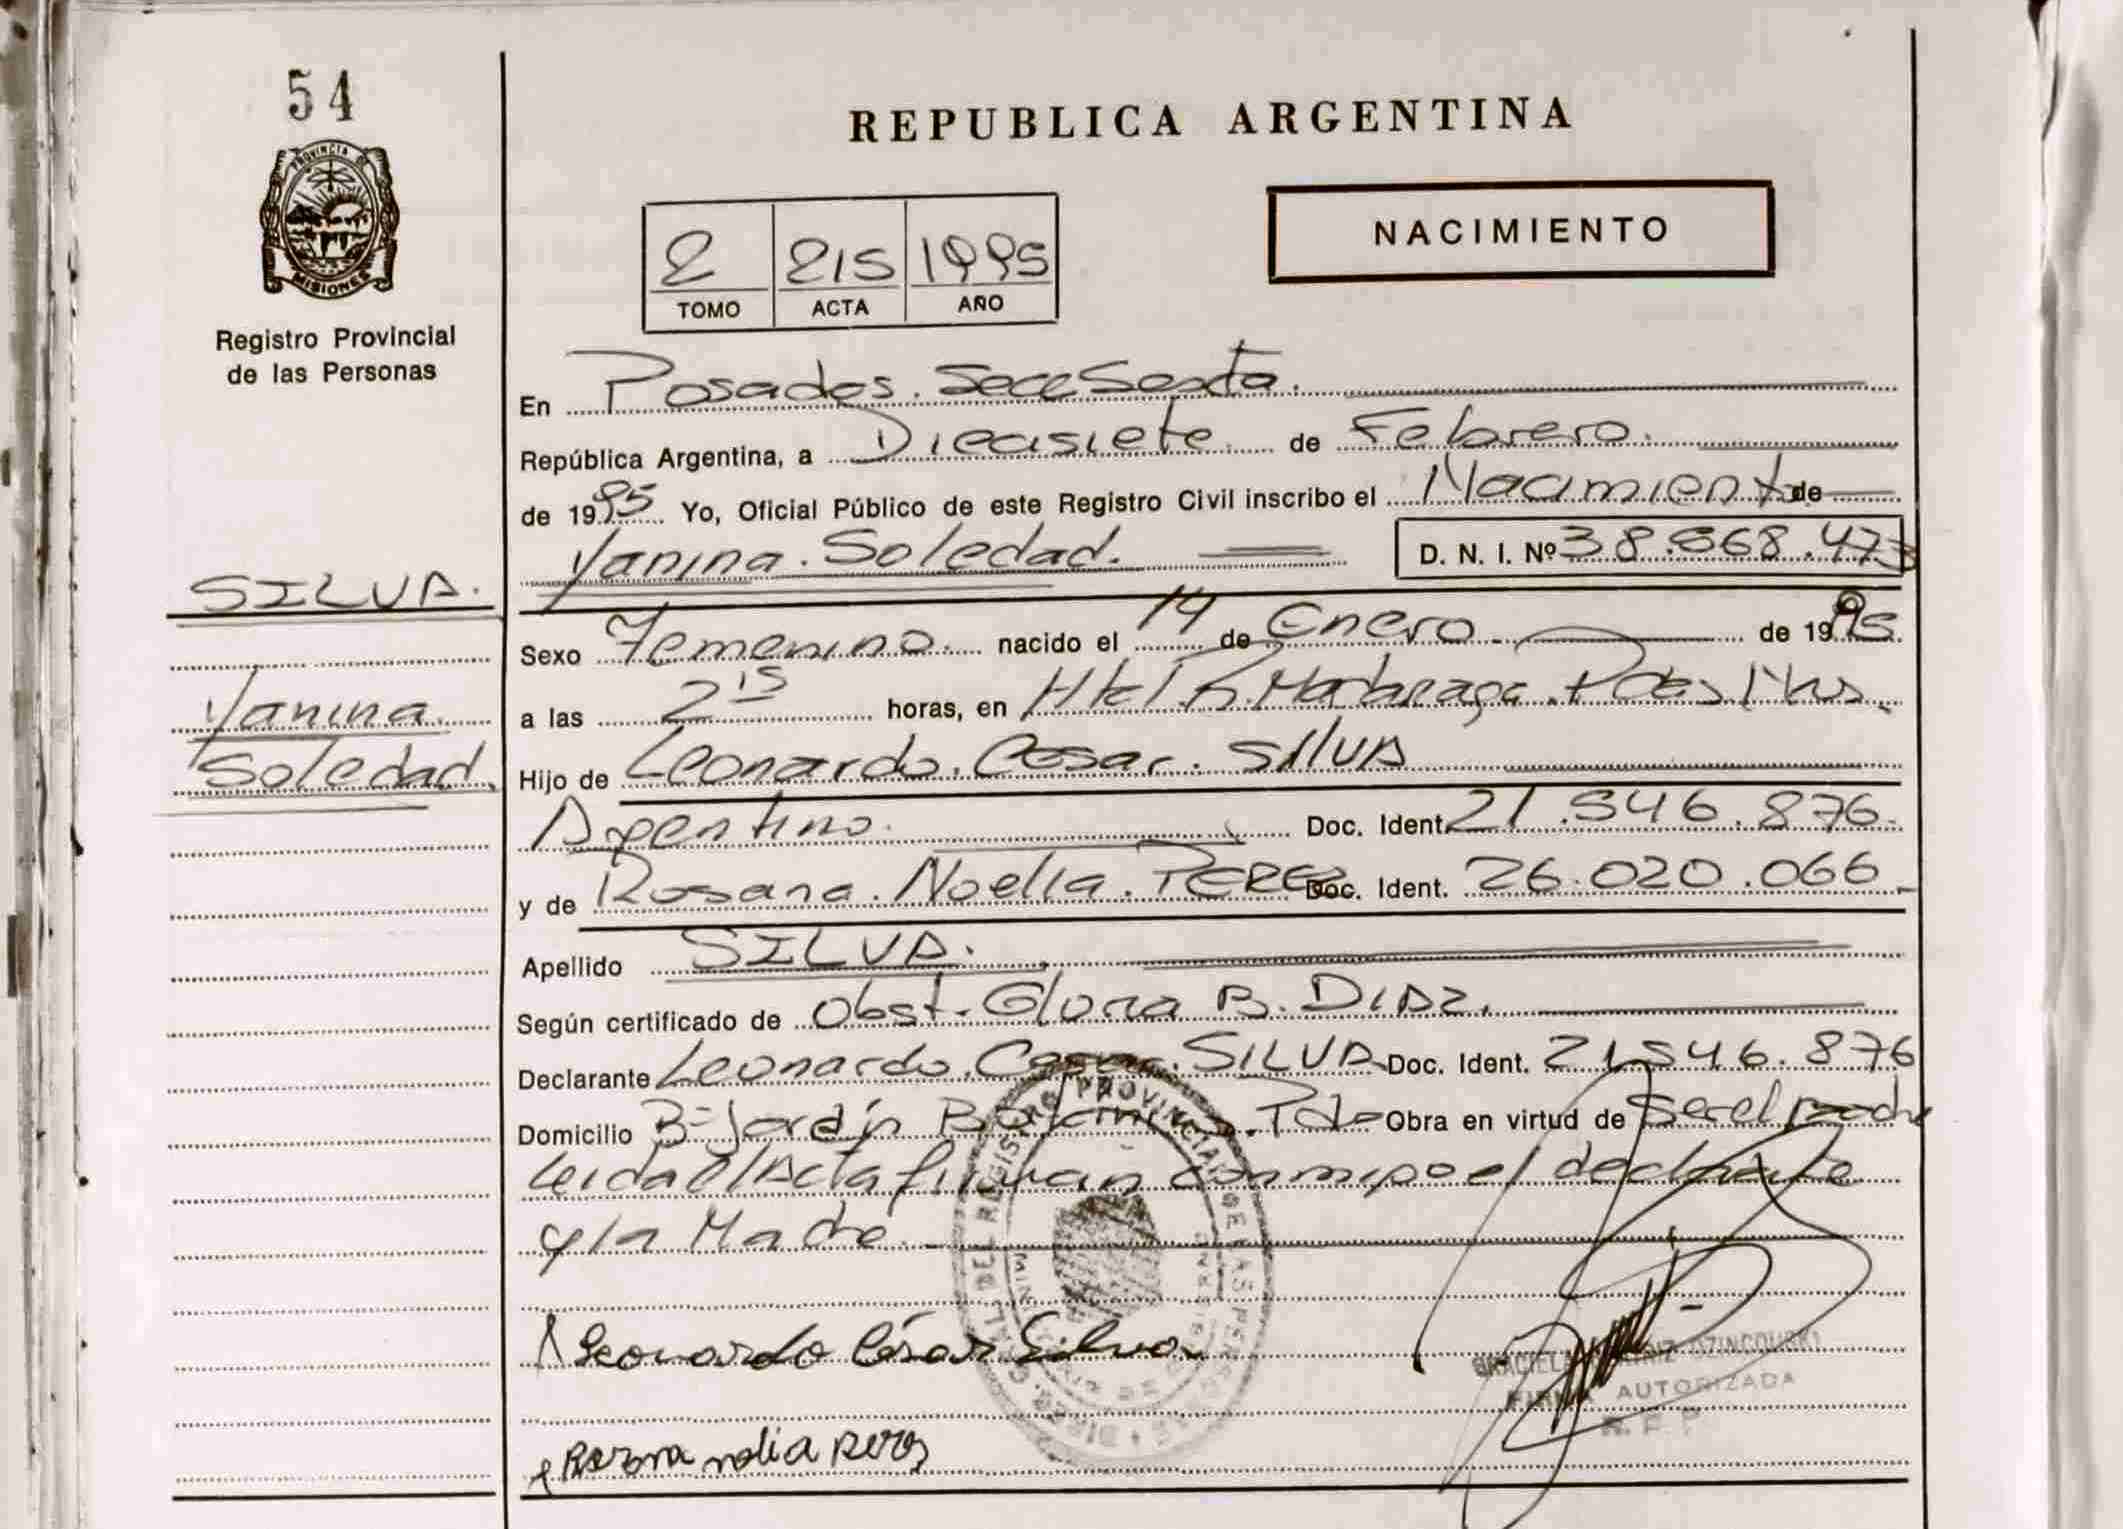 54
PROVINCIA DE
MISIONES
Registro Provincial
de las Personas
REPUBLICA ARGENTINA
NACIMIENTO
2 215 1995
TOMO ACTA AÑO
En Posadas. Secc Sexta.
República Argentina, a Diecisiete. de Febrero.
de 1995 Yo, Oficial Público de este Registro Civil inscribo el Nacimiento de
Yanina. Soledad. D. N. I. Nº 38.868.473
SILVA.
Yanina
Soledad.
Sexo Femenino. nacido el 14 de Enero de 1995
a las 2 15 horas, en Htal R. Madariaga. Pdas Mnes.
Hijo de Leonardo. Cesar. SILVA
Argentino. Doc. Ident. 21.546.876.
y de Rosana. Noelia. PEREZ Doc. Ident. 26.020.066
Apellido SILVA.
Según certificado de Obst. Gloria B. DIAZ.
Declarante Leonardo. Cesar. SILVA Doc. Ident. 21.546.876
Domicilio Bº Jardín Botanico. Pdas Obra en virtud de Ser el padre
Leida el Acta firman conmigo el declarante
y la Madre.
Leonardo César Silva
DIREC. GRAL DEL REGISTRO PROVINCIAL DE LAS PERSONAS
GRACIELA BEATRIZ
FIRMA AUTORIZADA
R. P. P.